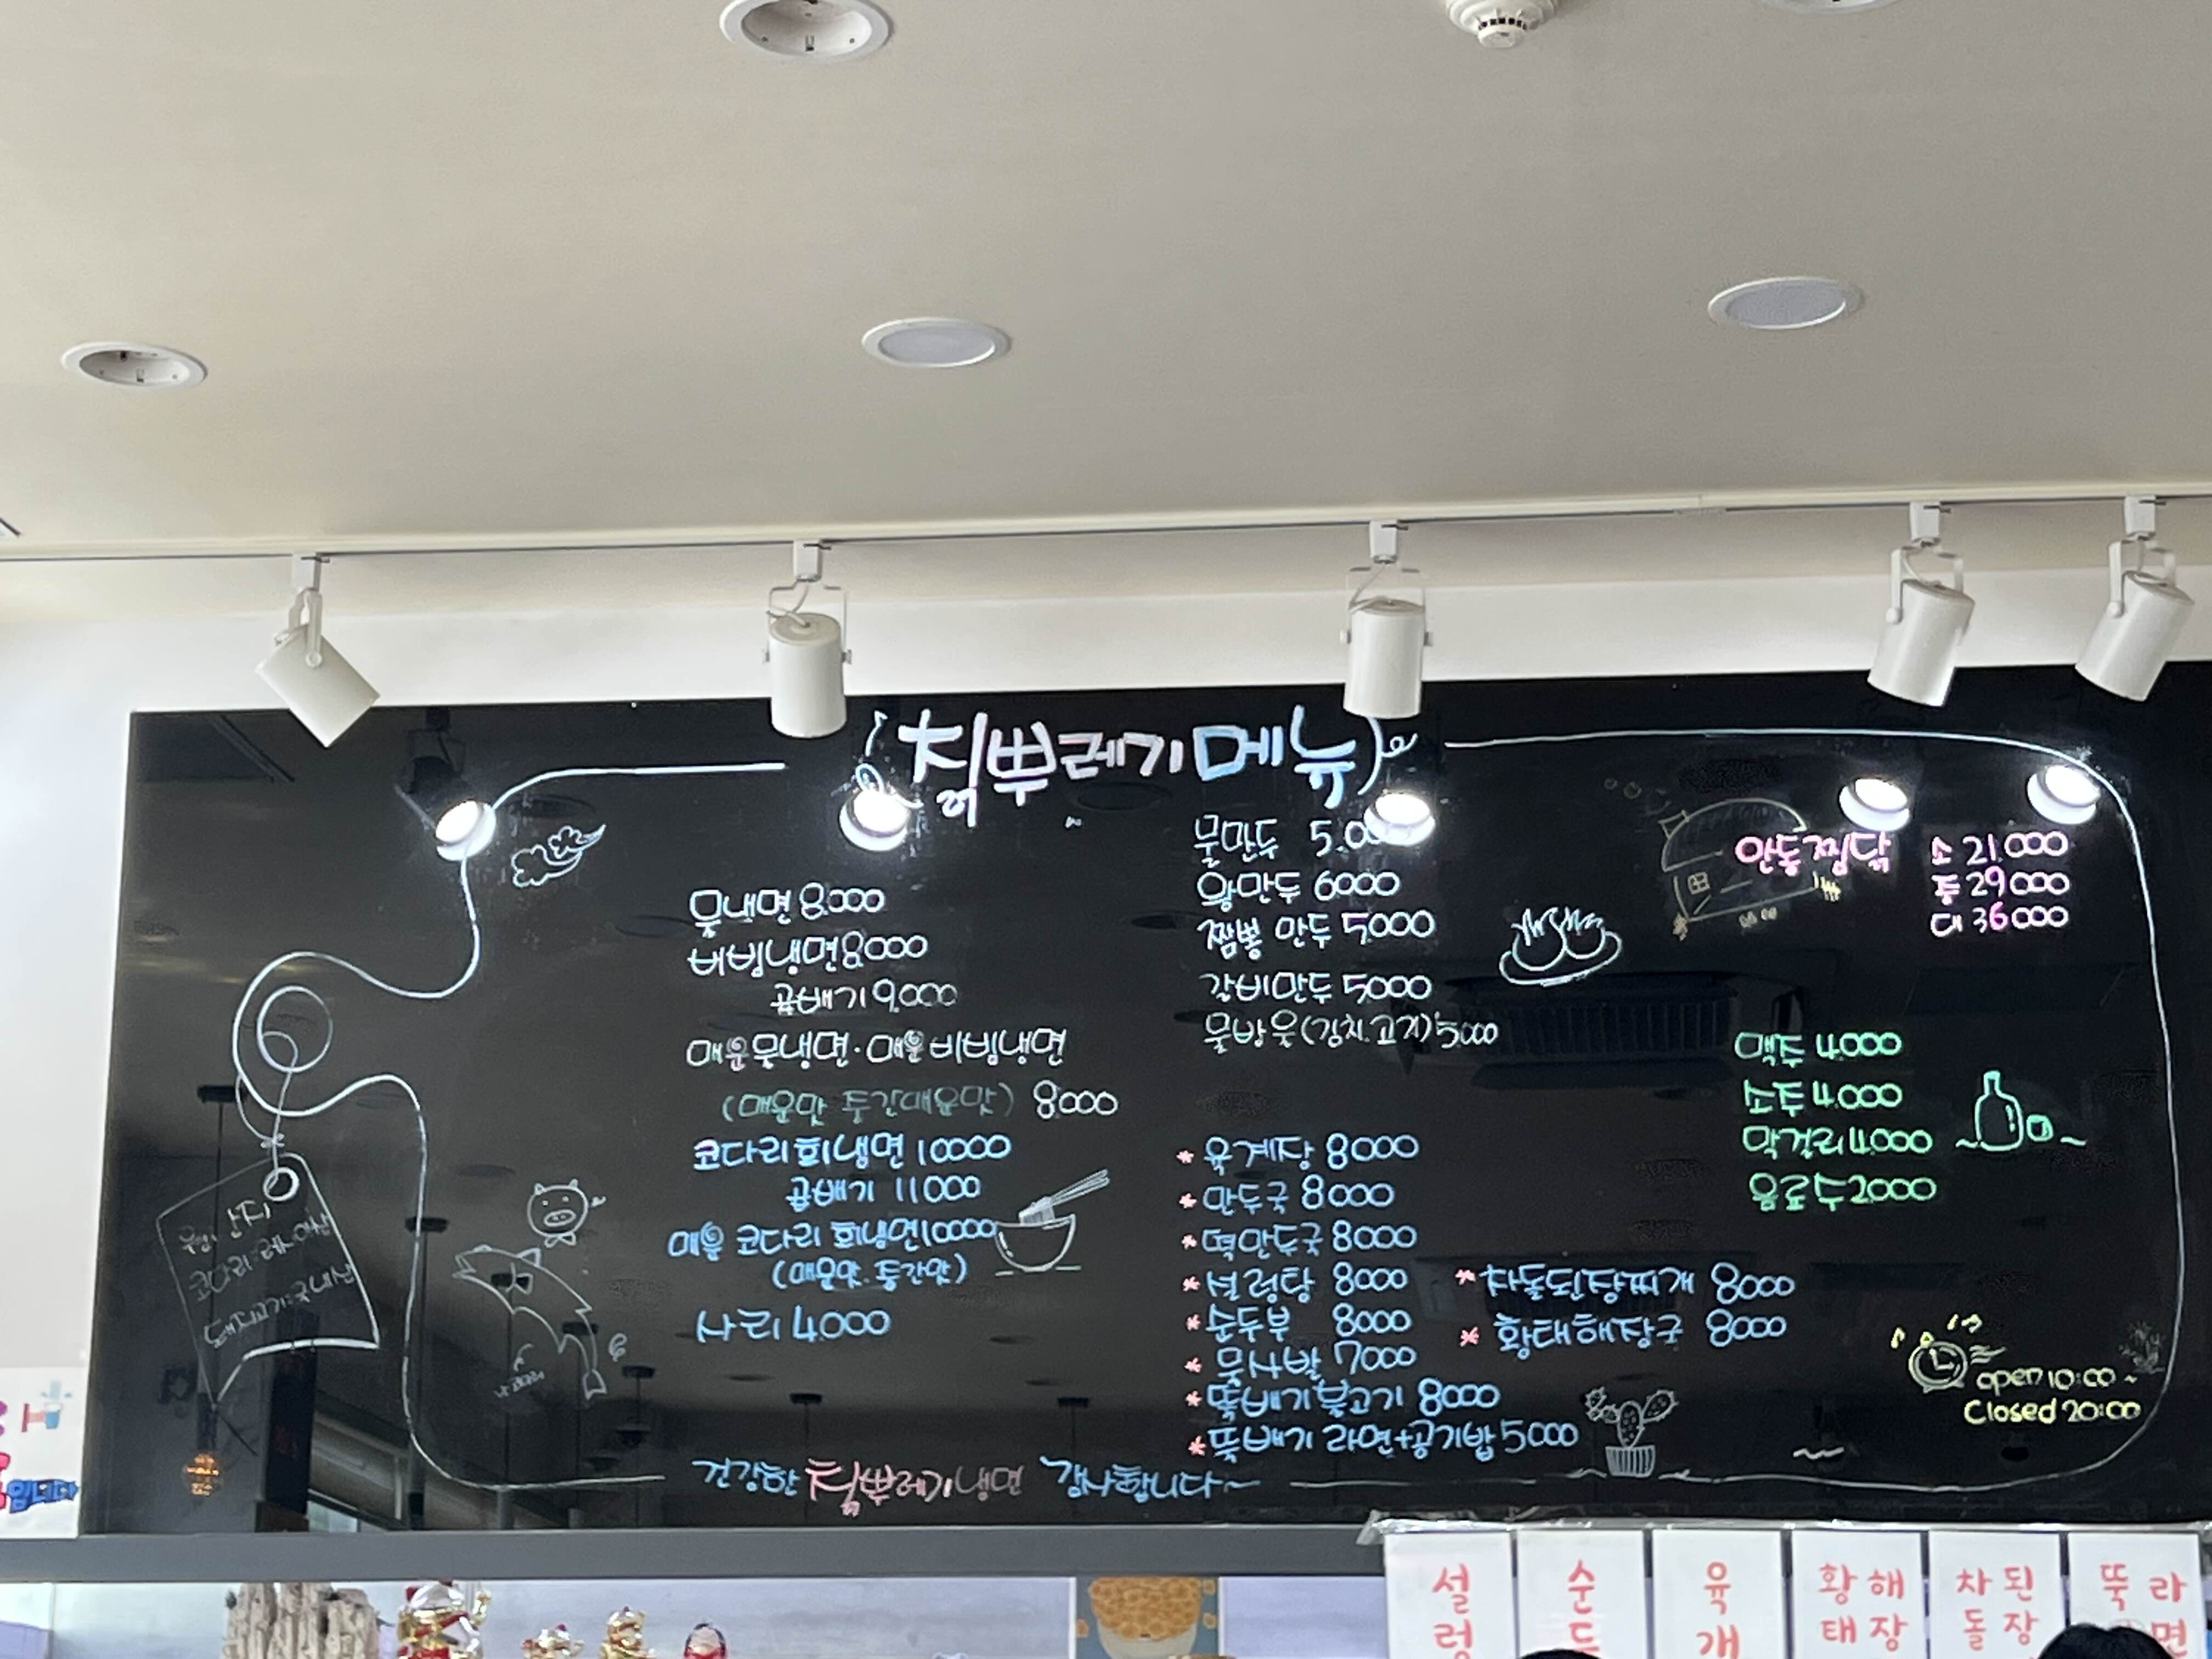 칡뿌레기 메뉴
물냉면 8.000
비빔냉면 8000
곱배기 9.000
매운물냉면·매운비빔냉면
(매운맛 중간매운맛) 8000
코다리회냉면 10000
곱배기 11000
매운 코다리 회냉면 10000
(매운맛. 중간맛)
사리 4.000
물만두 5.00
왕만두 6000
짬뽕 만두 5.000
갈비만두 5000
(김치.고기) 5000
* 육계장 8000
* 만두국 8000
* 떡만두국 8000
* 설렁탕 8000
* 순두부 8000
* 묵사발 7000
* 뚝배기불고기 8000
* 뚝배기 라면+공기밥 5000
* 차돌된장찌개 8000
* 황태해장국 8000
안동찜닭 소 21.000
중 29000
대 36000
맥주 4.000
소주 4.000
막걸리 4.000
음료수 2000
open 10:00 ~
Closed 20:00
코다리:
돼지고기:국내산
건강한 칡뿌레기냉면 감사합니다~
입니다
설렁
순두
육개
황태 해장
차돌 된장
뚝 라면